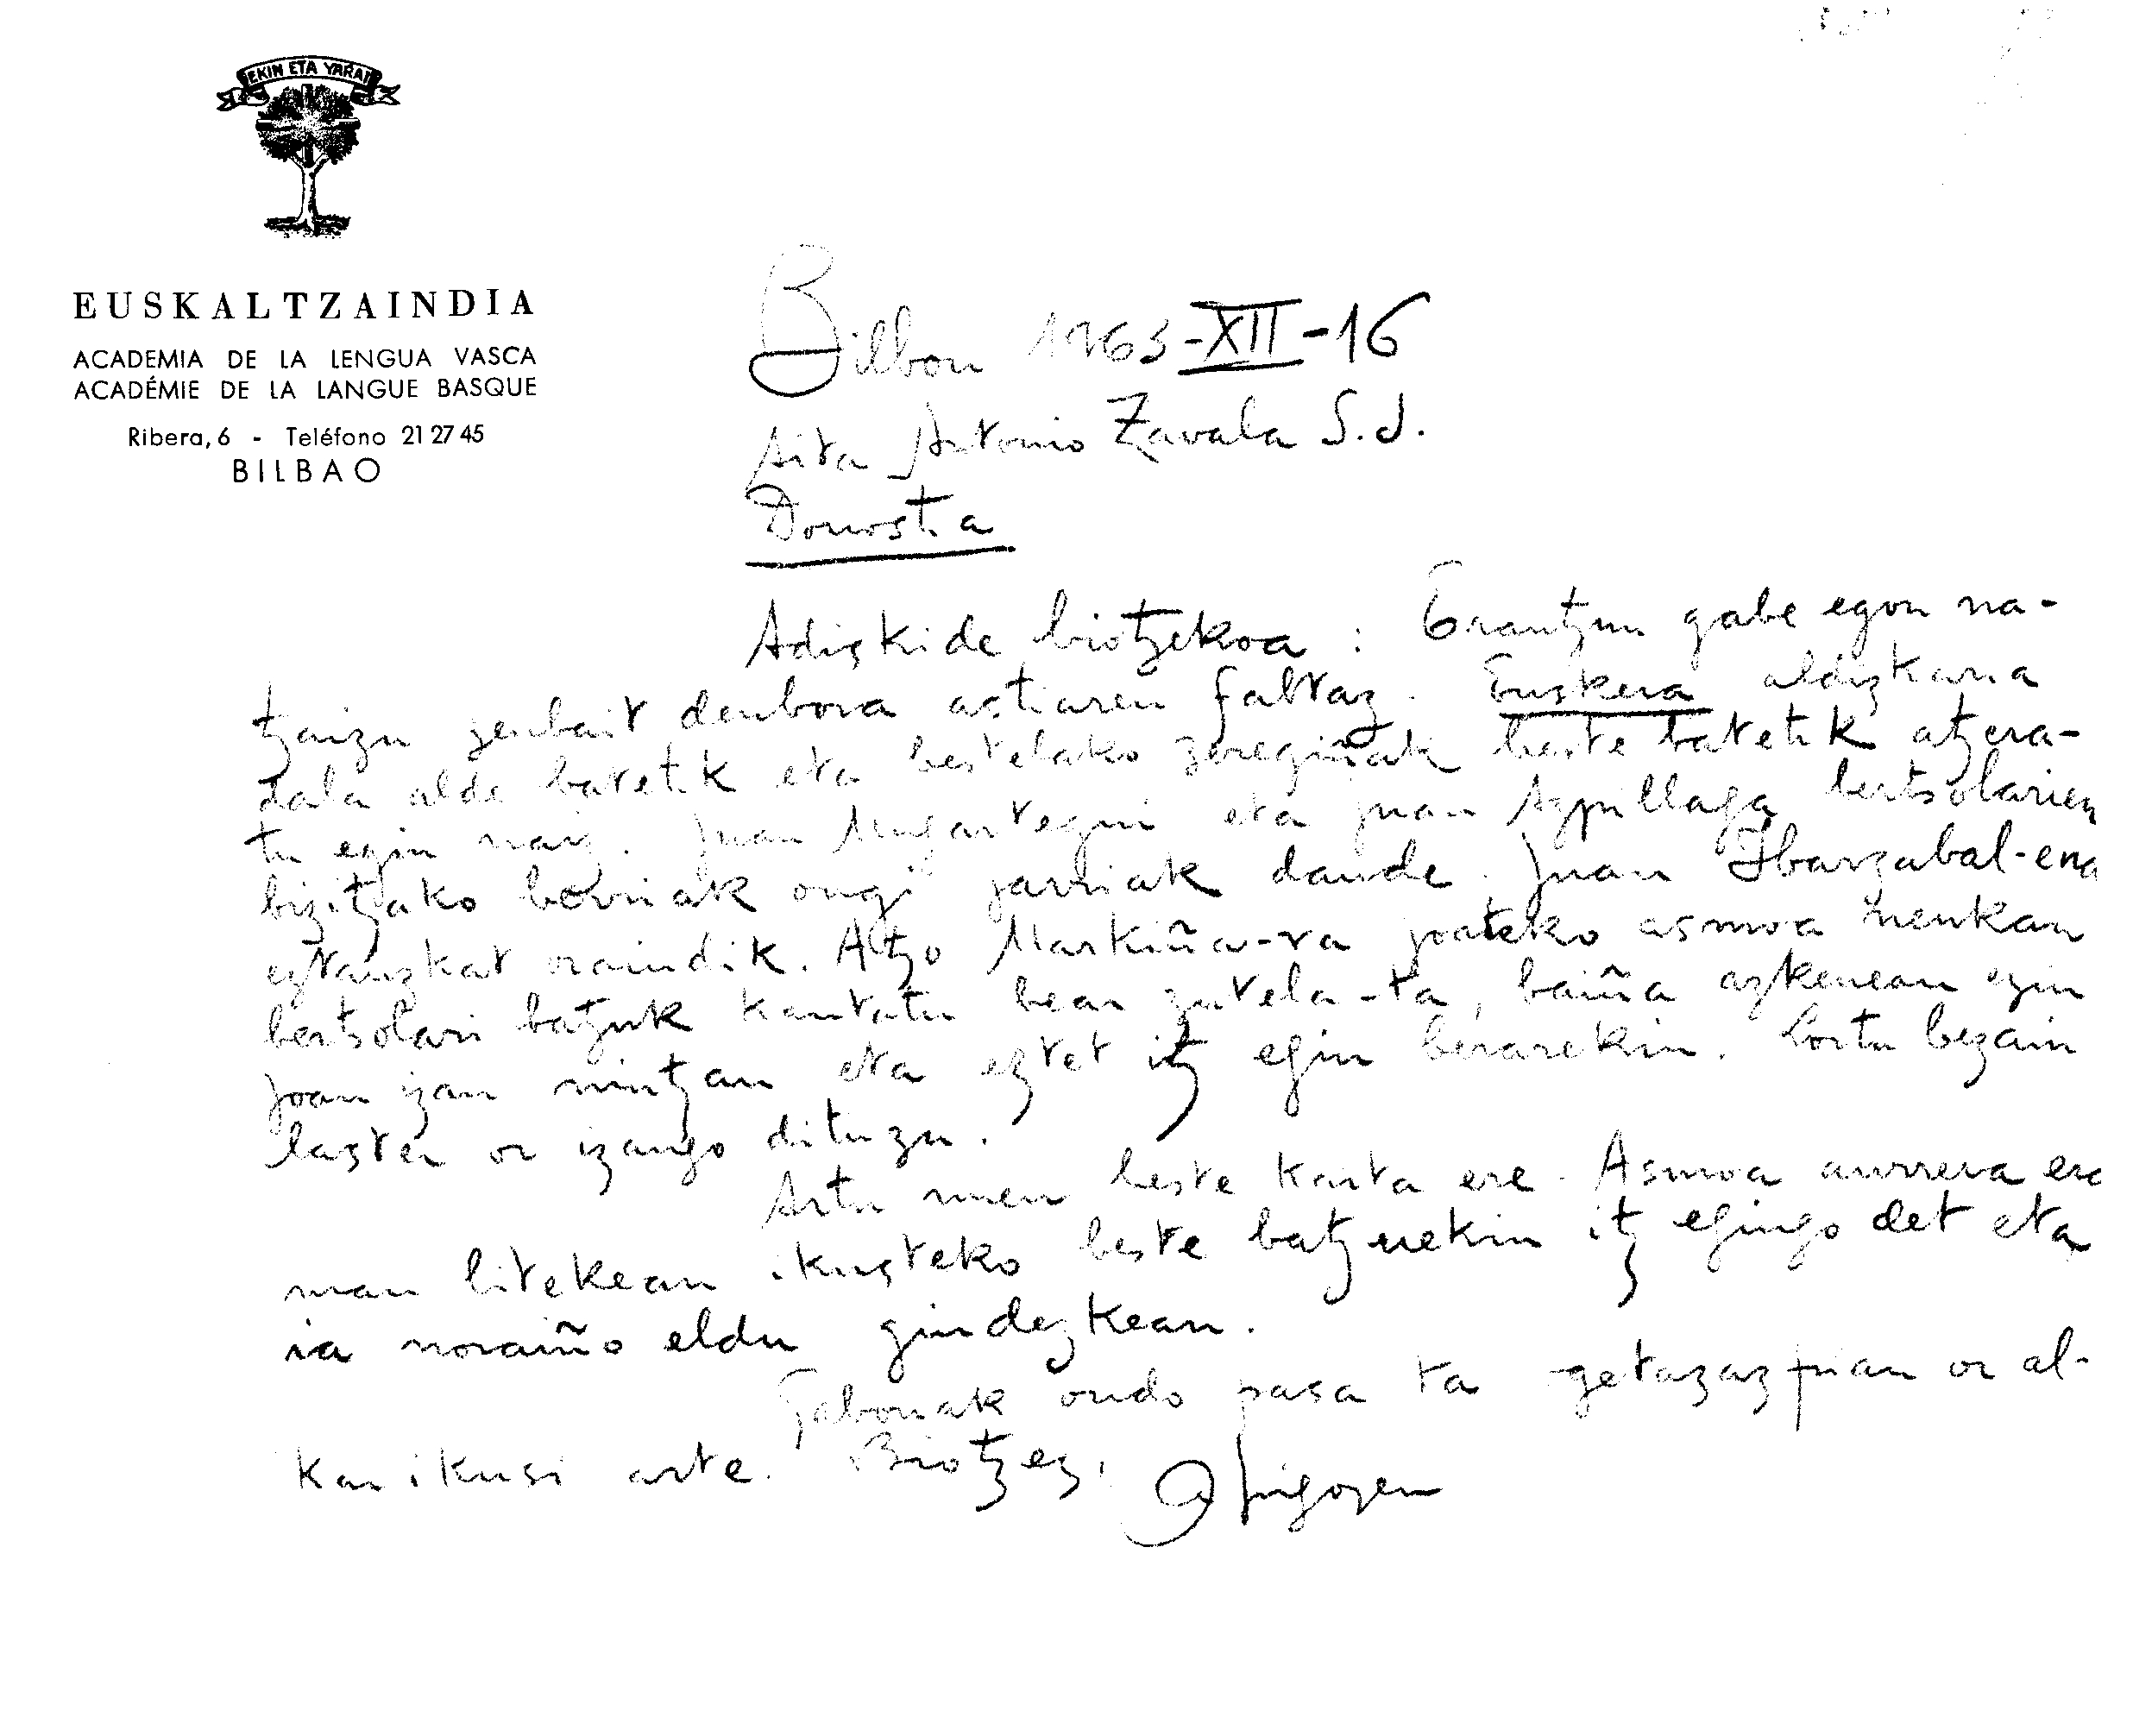 EKIN ETA YARAI
EUSKALTZAINDIA
ACADEMIA DE LA LENGUA VASCA
ACADÉMIE DE LA LANGUE BASQUE
Ribera, 6 - Teléfono 21 27 45
BILBAO
Bilbon 1963-XII-16
Aita Antonio Zavala S.J.
Donostia
Adiskide biotzekoa: Erantzun gabe egon na-
tzaizu zenbait denbora astiaren faltaz. Euskera aldizkaria
dala alde batetik eta bestelako zereginak beste batetik atzera-
tu egin naiz. Juan Mugartegui eta Juan Azpillaga bertsolarien
bizitzako berriak ongi jarriak daude. Juan Ibarzabal-ena
eztauzkat oraindik. Atzo Markiña-ra joateko asmoa neukan
bertsolari batzuk kantatu bear zutela-ta, baiña azkenean ezin
joan izan nintzan eta eztet itz egin berarekin. Lortu bezain
laster or izango dituzu.
Artu nuen beste karta ere. Asmoa aurrera era
man litekean ikusteko beste batzuekin itz egingo det eta
ia noraiño eldu gindezkean.
Gabonak ondo pasa ta ogetazazpian or al-
kar ikusi arte. Biotzez,
A Irigoyen